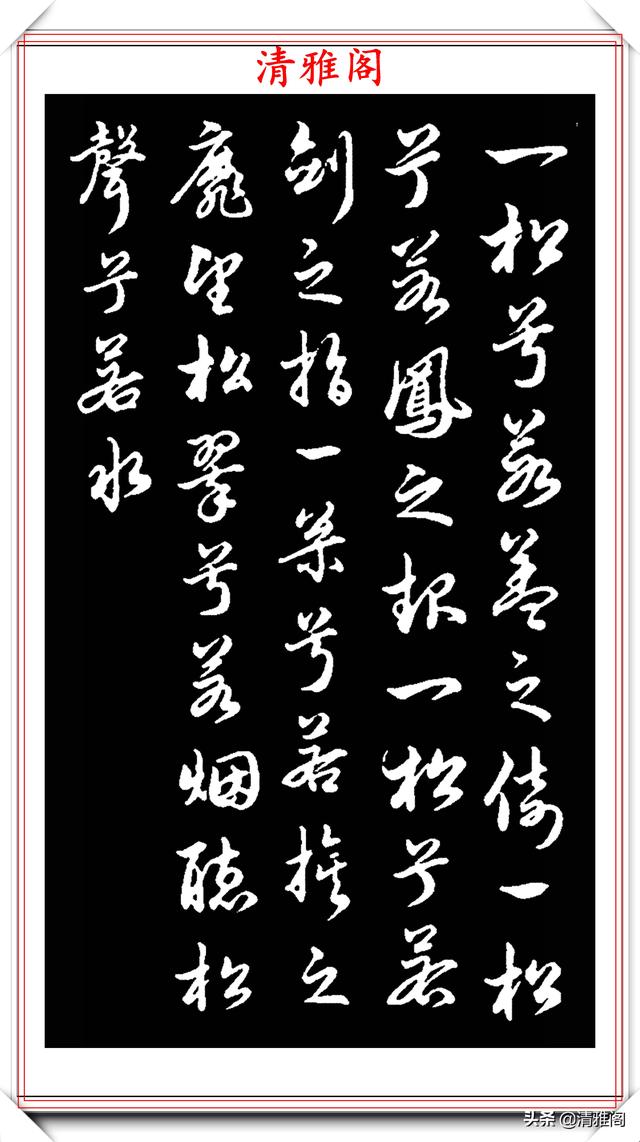 清雅阁
一松兮若盖之倚一松
兮若鳳之一松兮若
劍之指一兮若旌之
靡望松翠兮若烟聽松
聲兮若水
头条 @清雅阁